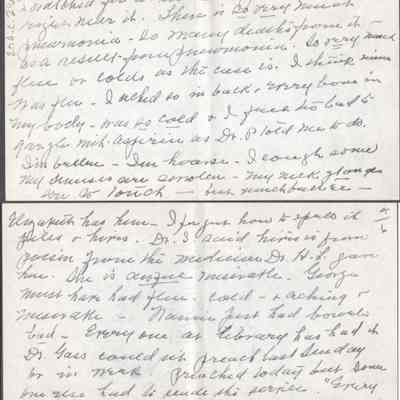 There is so very much
pneumonia - So many deaths from it -
as a result - from pneumonia. So very much
flu or colds as the case is. I think mine
was flu - I ached so in back & every bone in
my body - was so cold & I just sit bad &
gargle with aspirin as Dr. P told me to do.
I'm better - I'm hoarse - I cough some
my sinuses are swollen - my neck glands
sore to touch — but much better —
Elizabeth has him - I forgot how to spell it
piles & hives. Dr. I said hives is from
poison from the medicine Dr. H. L. gave
her. She is miserable - George
must have had flu - cold - & aching &
miserable - Nannie just had bowels
bad - Every one at library has had it
Dr. Gass could not preach last Sunday
or in week preached today but some
one else had to read the service. "Every